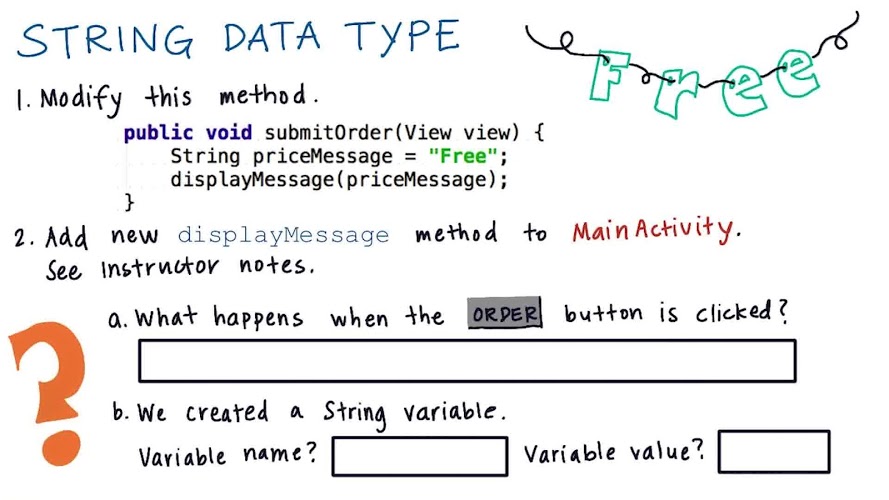 STRING DATA TYPE
Free
1. Modify this method.
public void submitOrder(View view) {
String priceMessage = "Free";
displayMessage(priceMessage);
}
2. Add new displayMessage method to MainActivity.
See Instructor notes.
?
a. What happens when the ORDER button is clicked?
b. We created a String variable.
Variable name? Variable value?